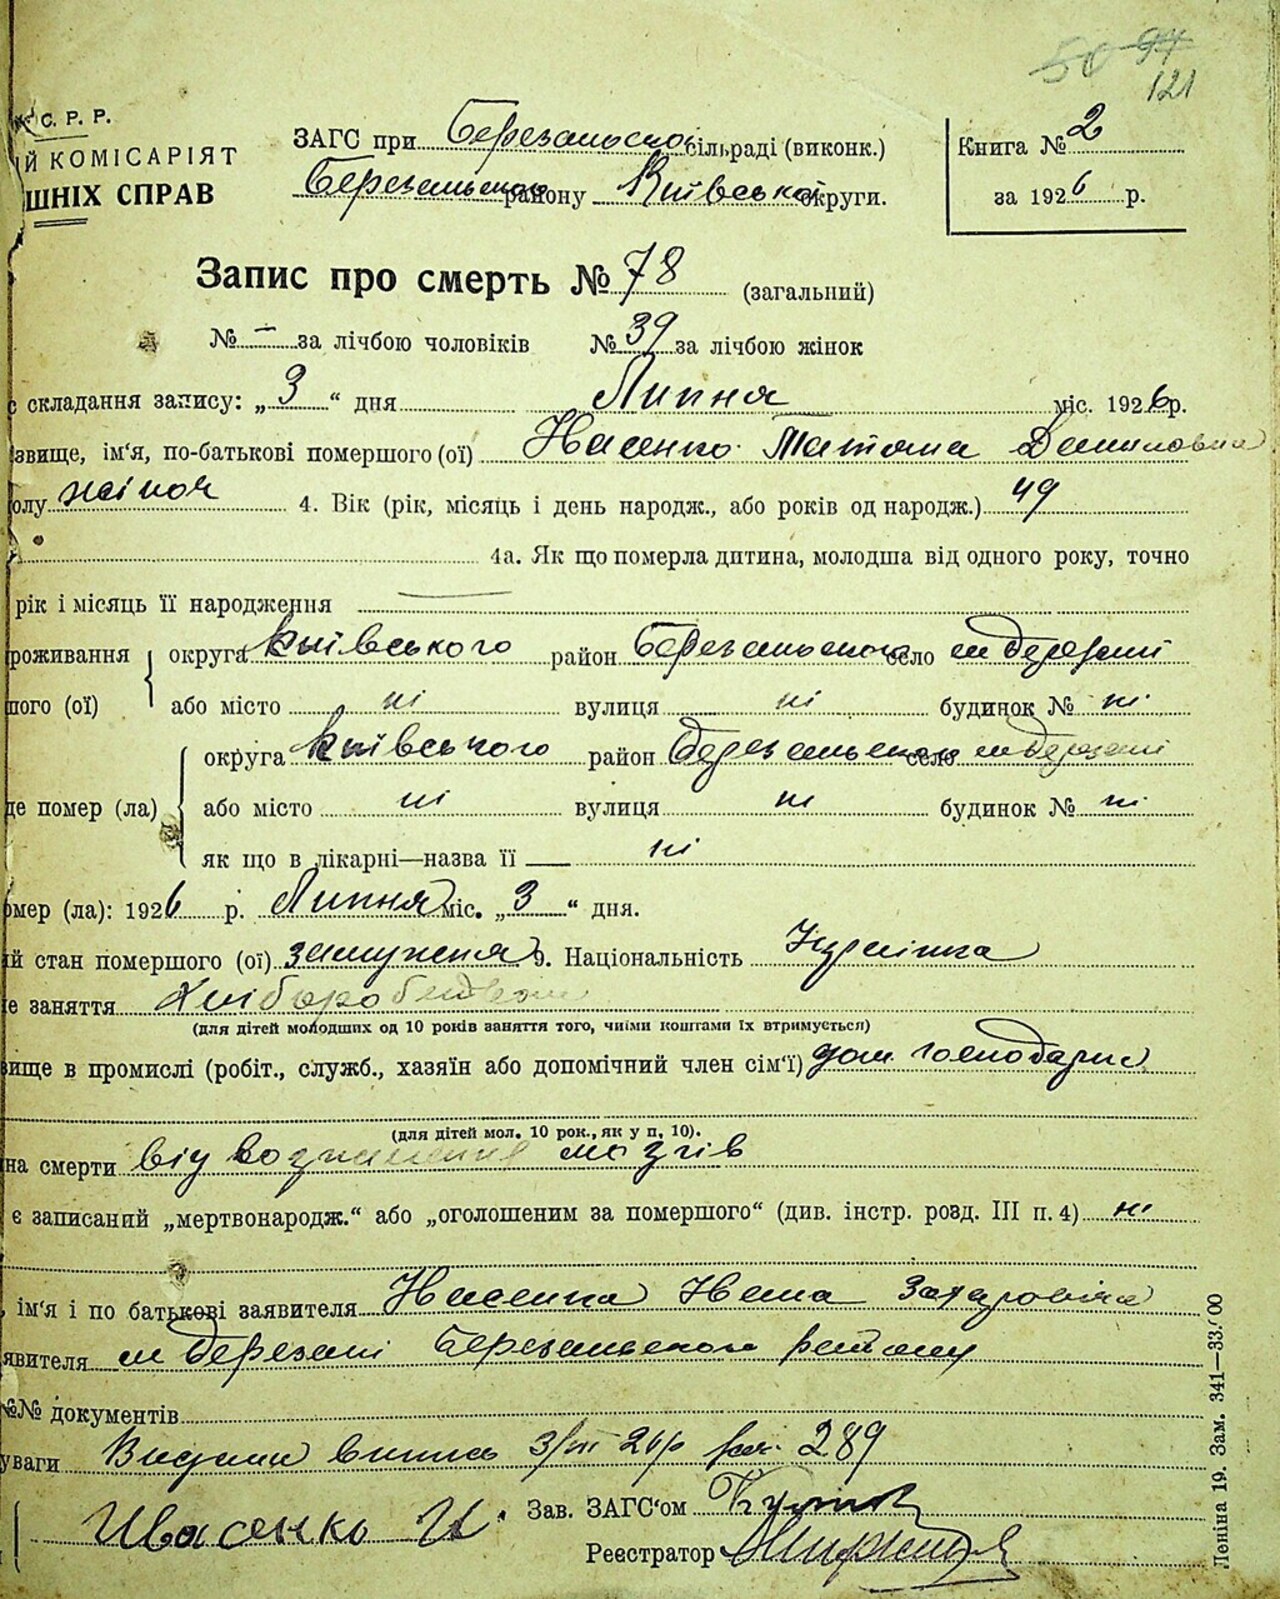 50 94
121
С. Р. Р.
ІЙ КОМІСАРІЯТ
ШНІХ СПРАВ
ЗАГС при Березанською сільраді (виконк.)
Березанського району Київської округи.
Книга № 2
за 1926 р.
Запис про смерть № 78 (загальний)
№ — за лічбою чоловіків № 39 за лічбою жінок
с складання запису: „3“ дня Липня міс. 1926 р.
звище, ім‘я, по-батькові помершого (ої) Івасенко Татяна Даниловна
олу жіноч 4. Вік (рік, місяць і день народж., або років од народж.) 49
4а. Як що померла дитина, молодша від одного року, точно
рік і місяць її народження —
роживання округа Київського район Березанського село м Березані
шого (ої) або місто ні вулиця ні будинок № ні
округа Київського район Березанського село м Березані
де помер (ла) або місто ні вулиця ні будинок № ні
як що в лікарні—назва її ні
омер (ла): 1926 р. Липня міс. „3“ дня.
ій стан помершого (ої) замужняя 9. Національність Українка
е заняття Хліборобство
(для дітей молодших од 10 років заняття того, чиїми коштами їх втримується)
вище в промислі (робіт., служб., хазяїн або допомічний член сім‘ї) дом. господарка
(для дітей мол. 10 рок., як у п. 10).
на смерти від мозгів
є записаний „мертвонародж.“ або „оголошеним за помершого“ (див. інстр. розд. III п. 4) ні
ім‘я і по батькові заявителя Івасенка Івана Захаровіча
явителя м Березані Березанського району
№№ документів
уваги Видани випись 3/VII 26 р 289
Ивасенко И. Зав. ЗАГС‘ом
Реєстратор
Леніна 19. Зам. 341—33.000